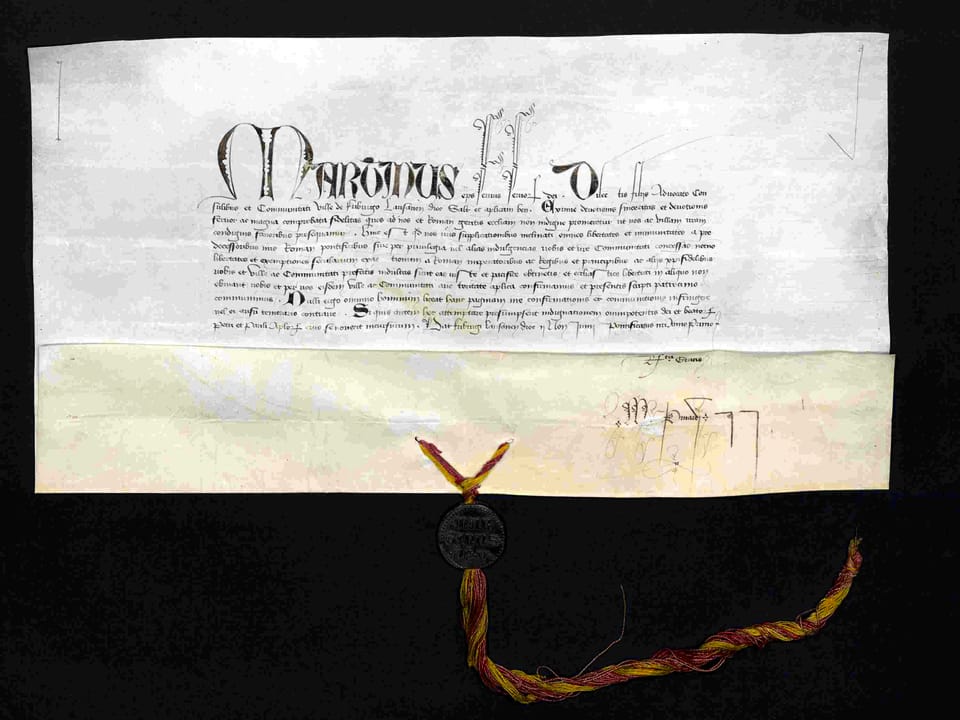 Martinus eps servus servor dei. Dilectis filiis Advocato Con
sulibus et Comunitati ville de friburgo Lausanen dioc Salt et aplicam ben. Eximie devotionis sinceritas et devotionis
fervor ac magna comprobata fidelitas quos ad nos et Roman geritis eccliam non indigne promeretur ut nos ac villam vram
condignis favoribus prosequamur. vris supplicationibus inclinati omnes libertates et immunitates a pre
decessoribus nris Roman pontificibus sive per privilegia vel alias indulgencias vobis et dicte Comunitati concessas necno
libertates et exemptiones secularium exactionum a Roman imperatoribus ac Regibus et principibus ac aliis xpifidelibus
vobis et ville ac Communitati prefatis indultas sicut eas iuste et pacifice obtinetis et ecclias tice libertati in aliquo non
obviant vobis et per vos eisdem ville ac Comunitati auctoritate aplica confirmamus et presentis scripti patrocinio
communimus. Nulli ergo omnino hominum liceat hanc paginam nre confirmationis et communitionis infringere
vel ei ausu temerario contraire. Si quis autem hoc attemptare presumpserit indignationem omnipotentis dei et beator
Petri et Pauli Aplor eius se noverit incursurum. Dat friburgi Lausanen dioc Non Junii Pontificatus nri Anno Primo